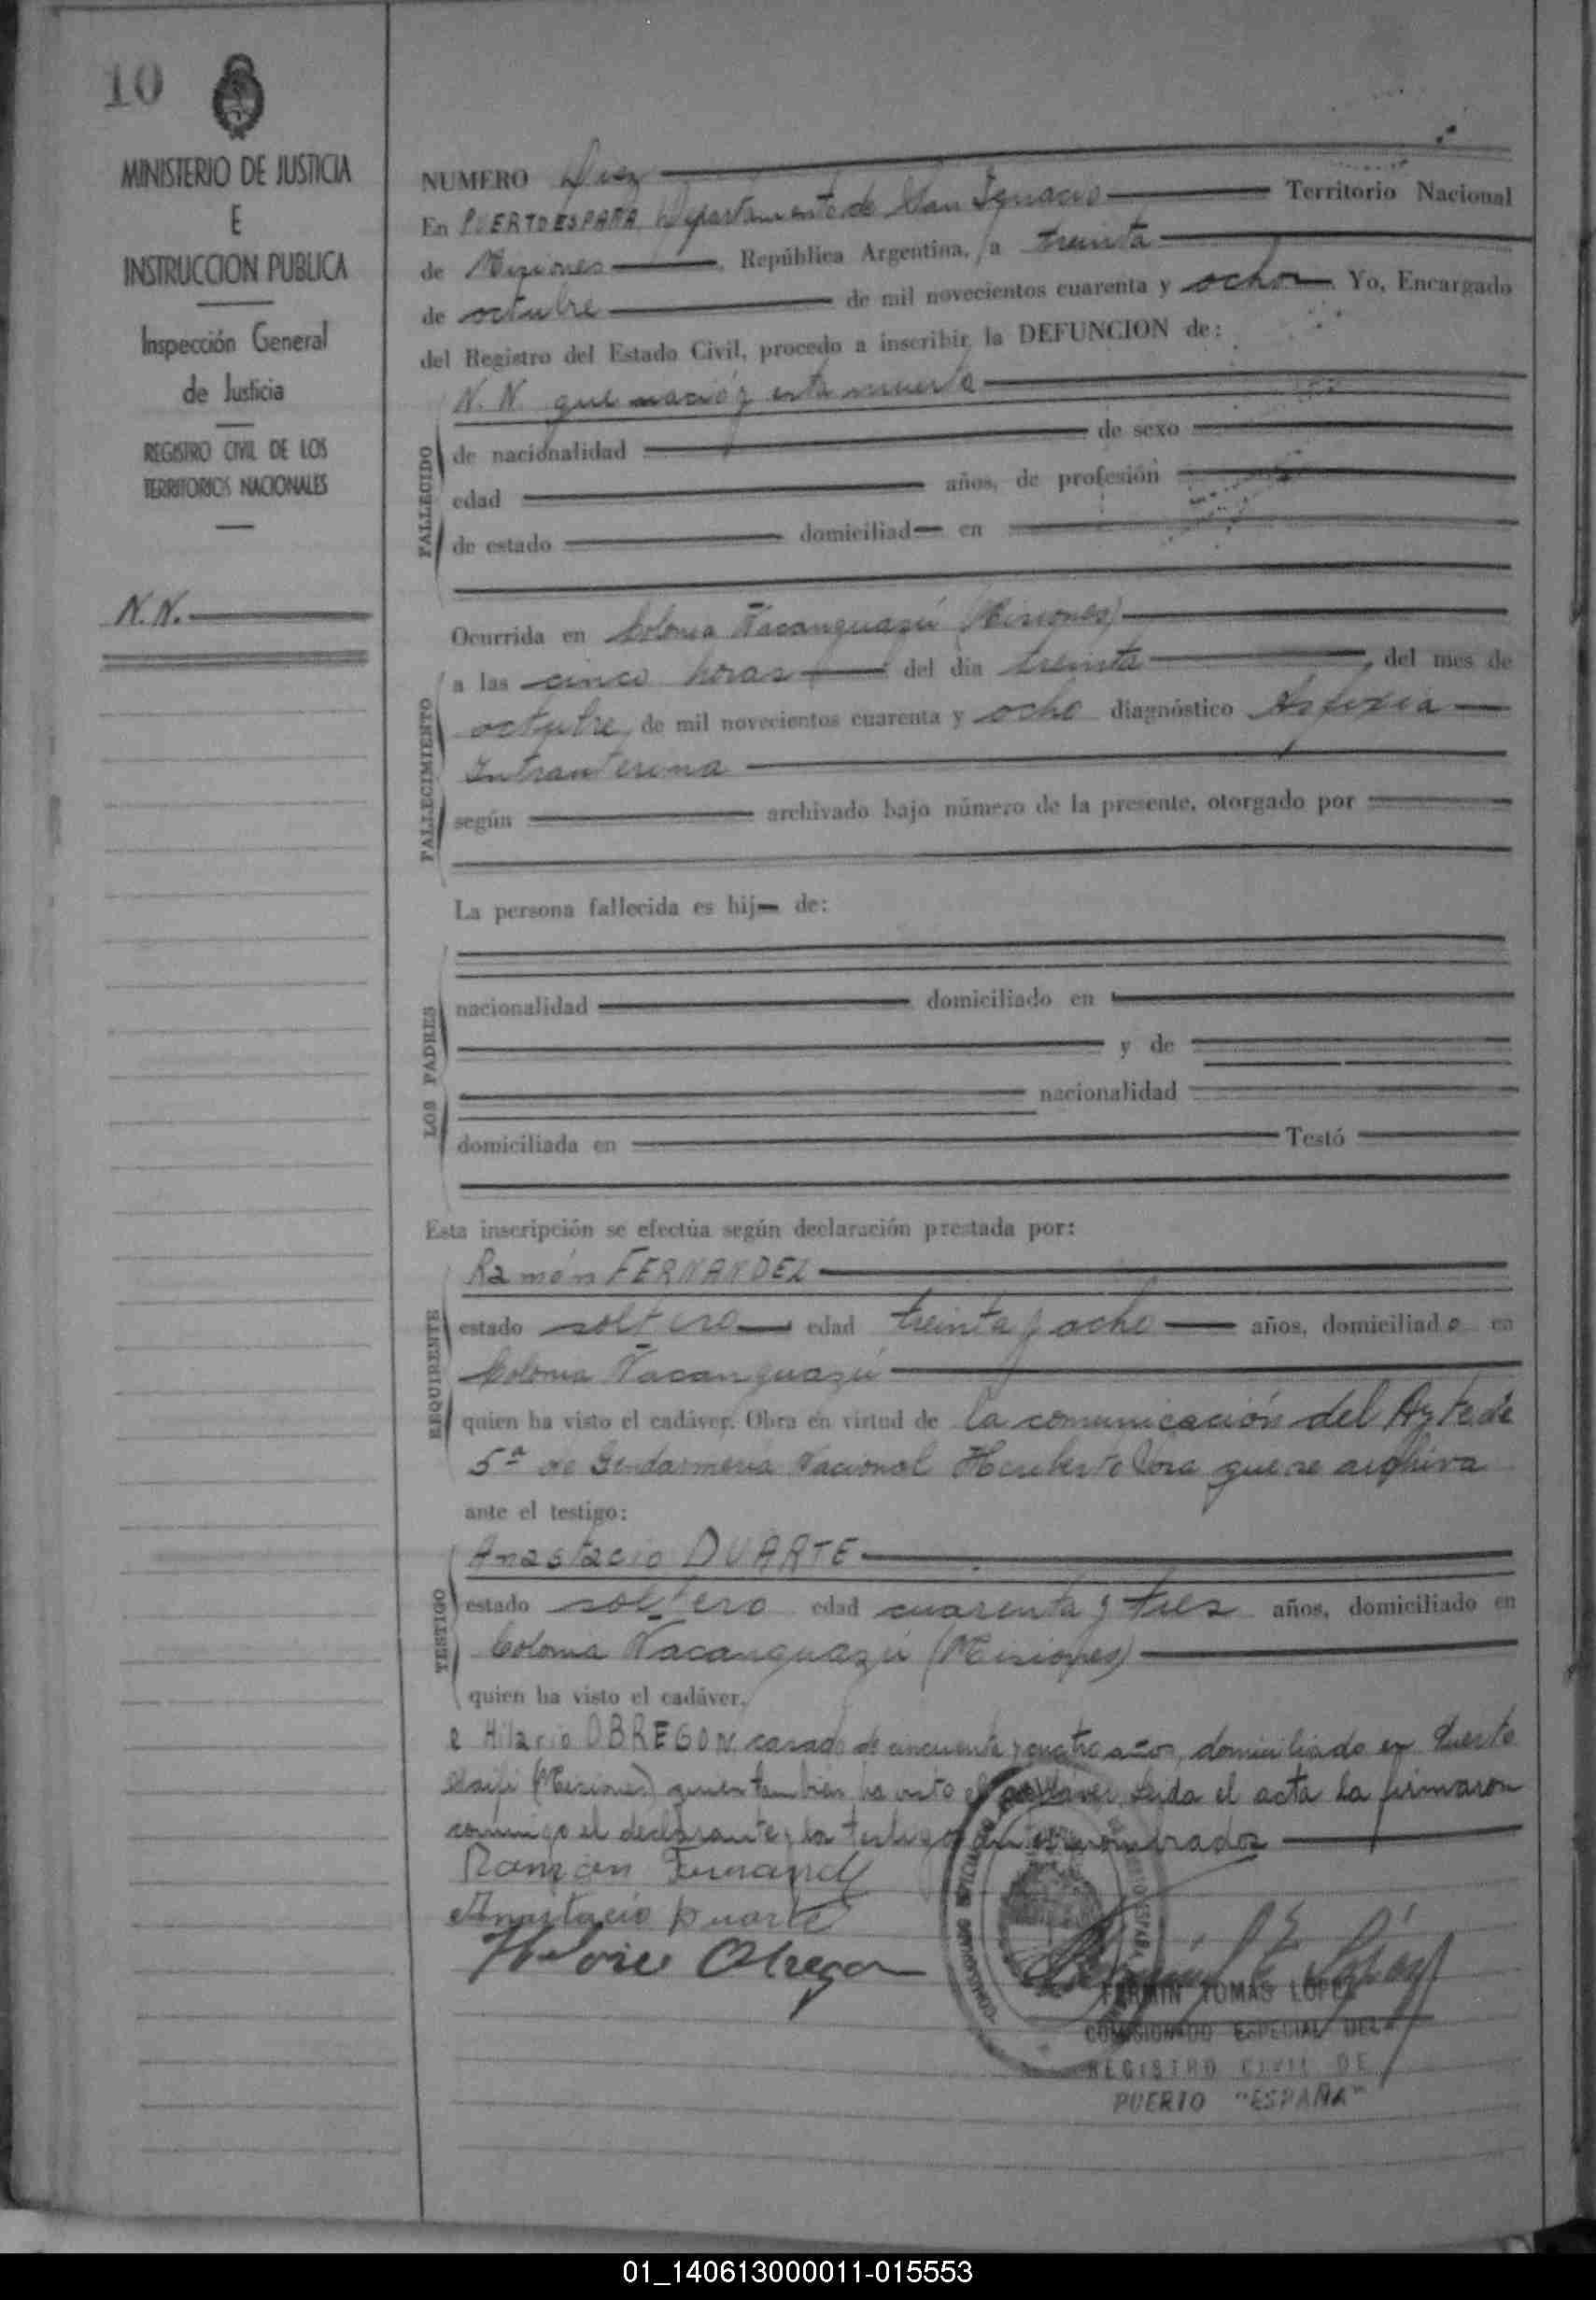 10
MINISTERIO DE JUSTICIA
E
INSTRUCCION PUBLICA
Inspección General
de Justicia
REGISTRO CIVIL DE LOS
TERRITORIOS NACIONALES
N. N.
NUMERO Diez
En PUERTO ESPAÑA, Departamento de San Ignacio Territorio Nacional
de Misiones, República Argentina, a treinta
de octubre de mil novecientos cuarenta y ocho Yo, Encargado
del Registro del Estado Civil, procedo a inscribir la DEFUNCION de:
N. N. que nació y esta muerta
FALLECIDO
de nacionalidad de sexo
edad años, de profesión
de estado domiciliad en
FALLECIMIENTO
Ocurrida en Colonia Ñacanguazú (Misiones)
a las cinco horas del día treinta, del mes de
octubre, de mil novecientos cuarenta y ocho diagnóstico Asfixia
Intrauterina
según archivado bajo número de la presente, otorgado por
La persona fallecida es hij de:
LOS PADRES
nacionalidad domiciliado en
y de
nacionalidad
domiciliada en Testó
Esta inscripción se efectúa según declaración prestada por:
REQUIRENTE
Ramón FERNANDEZ
estado soltero edad treinta y ocho años, domiciliado en
Colonia Ñacanguazú
quien ha visto el cadáver. Obra en virtud de la comunicación del Ayte de
5ª de Gendarmería Nacional Heriberto que se archiva
ante el testigo:
TESTIGO
Anastacio DUARTE
estado soltero edad cuarenta y tres años, domiciliado en
Colonia Ñacanguazú (Misiones)
quien ha visto el cadáver,
e Hilario OBREGON, casado de cincuenta y cuatro años, domiciliado en Puerto
(Misiones) quien tambien ha visto el cadaver. Leida el acta la firmaron
conmigo el declarante y los testigos antes nombrados
Ramon Fernandez
Anastacio Duarte
Obregon
FERMIN TOMAS LOPEZ
COMISIONADO ESPECIAL DEL
REGISTRO CIVIL DE
PUERTO "ESPAÑA"
01_140613000011-015553